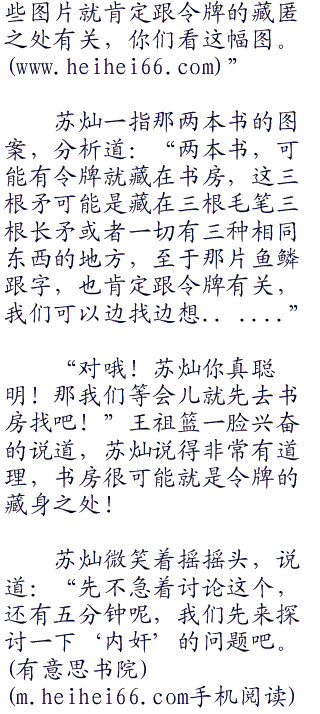 些图片就肯定跟令牌的藏匿
之处有关，你们看这幅图。
(www.heihei66.com)”
苏灿一指那两本书的图
案，分析道：“两本书，可
能有令牌就藏在书房，这三
根矛可能是藏在三根毛笔三
根长矛或者一切有三种相同
东西的地方，至于那片鱼鳞
跟字，也肯定跟令牌有关，
我们可以边找边想．．．．．．”
“对哦！苏灿你真聪
明！那我们等会儿就先去书
房找吧！”王祖篮一脸兴奋
的说道，苏灿说得非常有道
理，书房很可能就是令牌的
藏身之处！
苏灿微笑着摇摇头，说
道：“先不急着讨论这个，
还有五分钟呢，我们先来探
讨一下‘内奸’的问题吧。
(有意思书院)
(m.heihei66.com手机阅读)